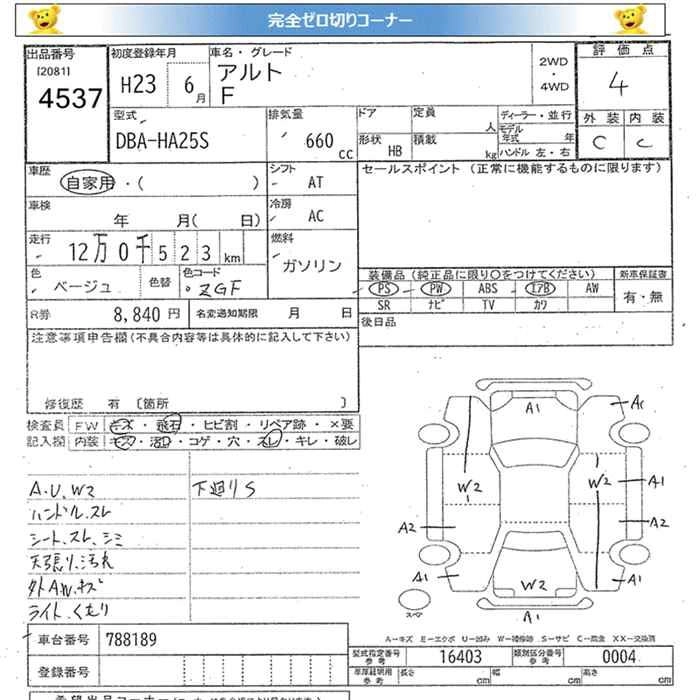 完全ゼロ切りコーナー
出品番号 初度登録年月 車名・グレード 評価点
[2081] アルト 2WD
4537 H23 6月 F ・ 4WD 4
型式 排気量 ドア 定員 ディーラー・並行 外装 内装
DBA-HA25S 660 cc 人 モデル年式 年 C C
形状 HB 積載 kg ハンドル 左・右
車歴 シフト セールスポイント (正常に機能するものに限ります)
自家用・( ) AT
車検 冷房
年 月( 日) AC
走行 燃料
12万0千523km ガソリン
色 色替 色コード 装備品(純正品に限り○をつけてください) 新車保証書
ベージュ ZGF PS PW ABS エアB AW 有・無
SR ナビ TV カワ
R券 8,840円 名変通知期限 月 日 後日品
注意事項申告欄(不具合内容等は具体的に記入して下さい)
修復歴 有 [箇所 ]
検査員 FW キズ・飛石・ヒビ割・リペア跡・×要
記入欄 内装 キズ・汚・コゲ・穴・スレ・キレ・破レ
A.U.W2 下廻りS
ハンドル.スレ
シート.スレ.シミ
天張り.汚れ
外AW.キズ
ライト.くもり
A1 AC
W2 W2 A1
A2 A2
A1 W2 A1
スペア A1
A-キズ E-エクボ U-凹み W-補修跡 S-サビ C-腐食 XX-交換済
車台番号 788189
型式指定番号 参考 16403 類別区分番号 参考 0004
登録番号 車庫証明用 参考 長さ cm 幅 cm 高さ cm
希望出品コーナー